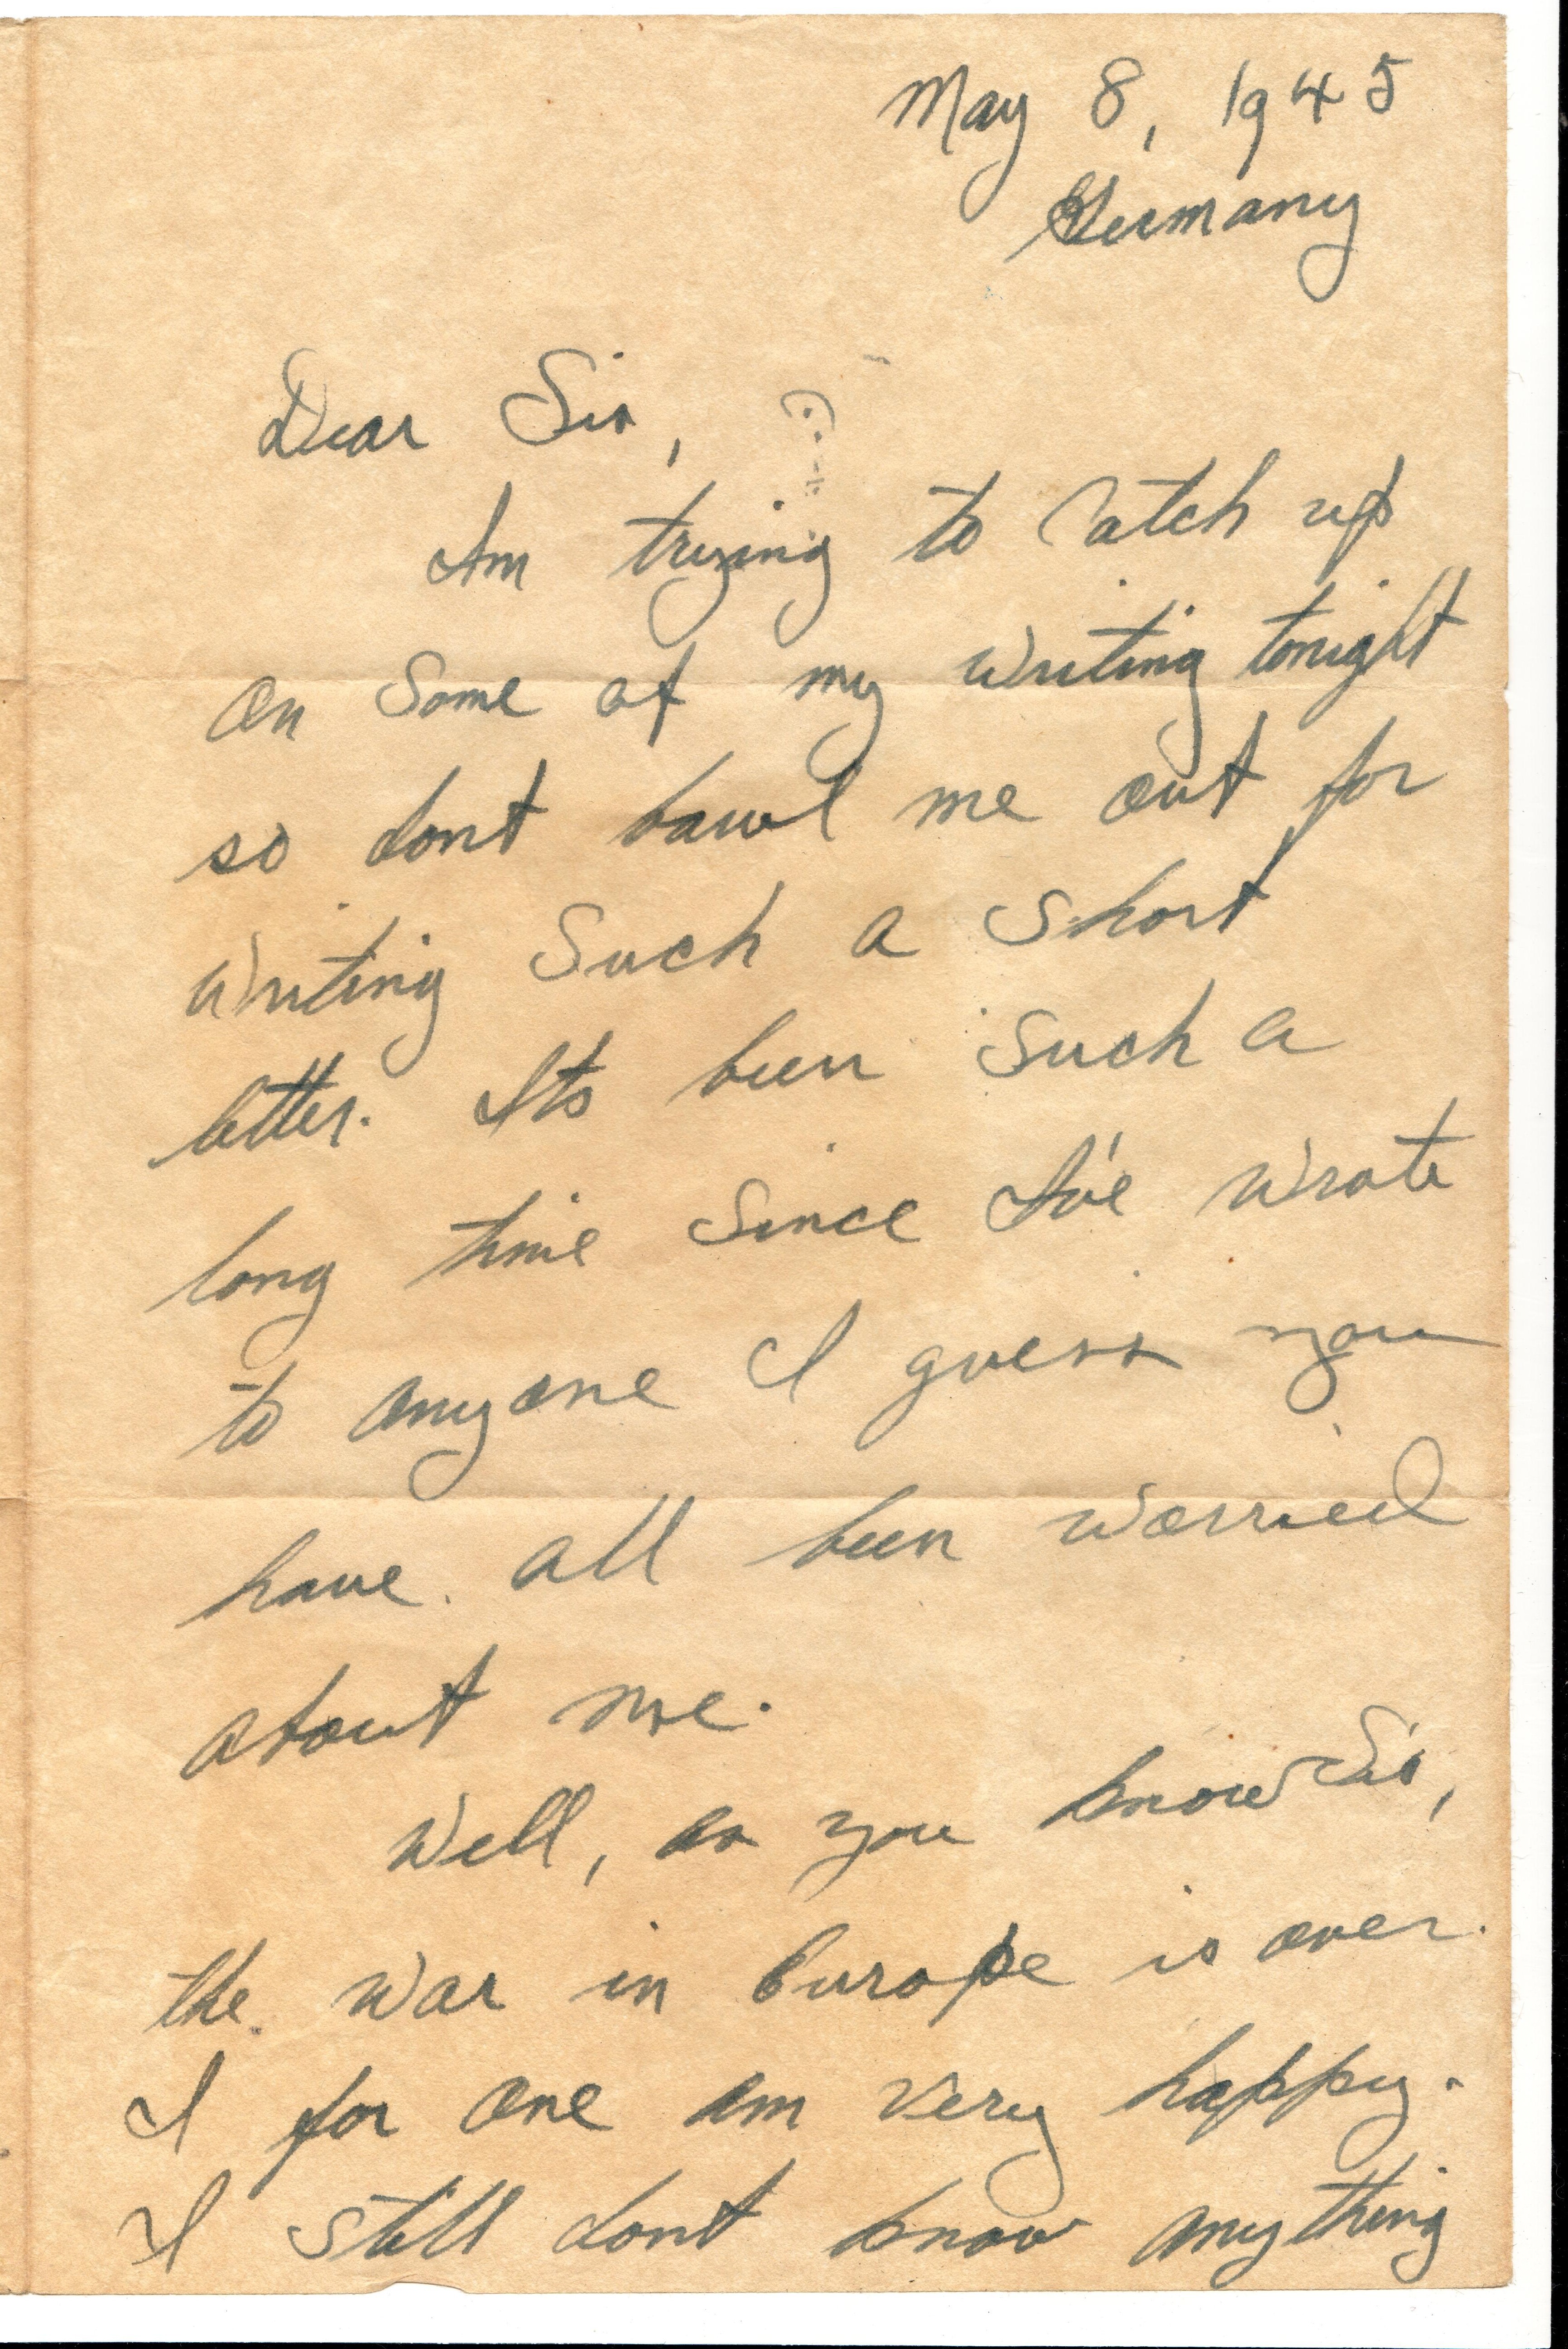 May 8, 1945
Germany
Dear Sis,
Am trying to catch up
on some of my writing tonight
so dont bawl me out for
writing such a short
letter. Its been such a
long time since I've wrote
to anyone I guess you
have all been worried
about me.
Well, as you know Sis,
the war in Europe is over.
I for one am very happy.
I still dont know anything